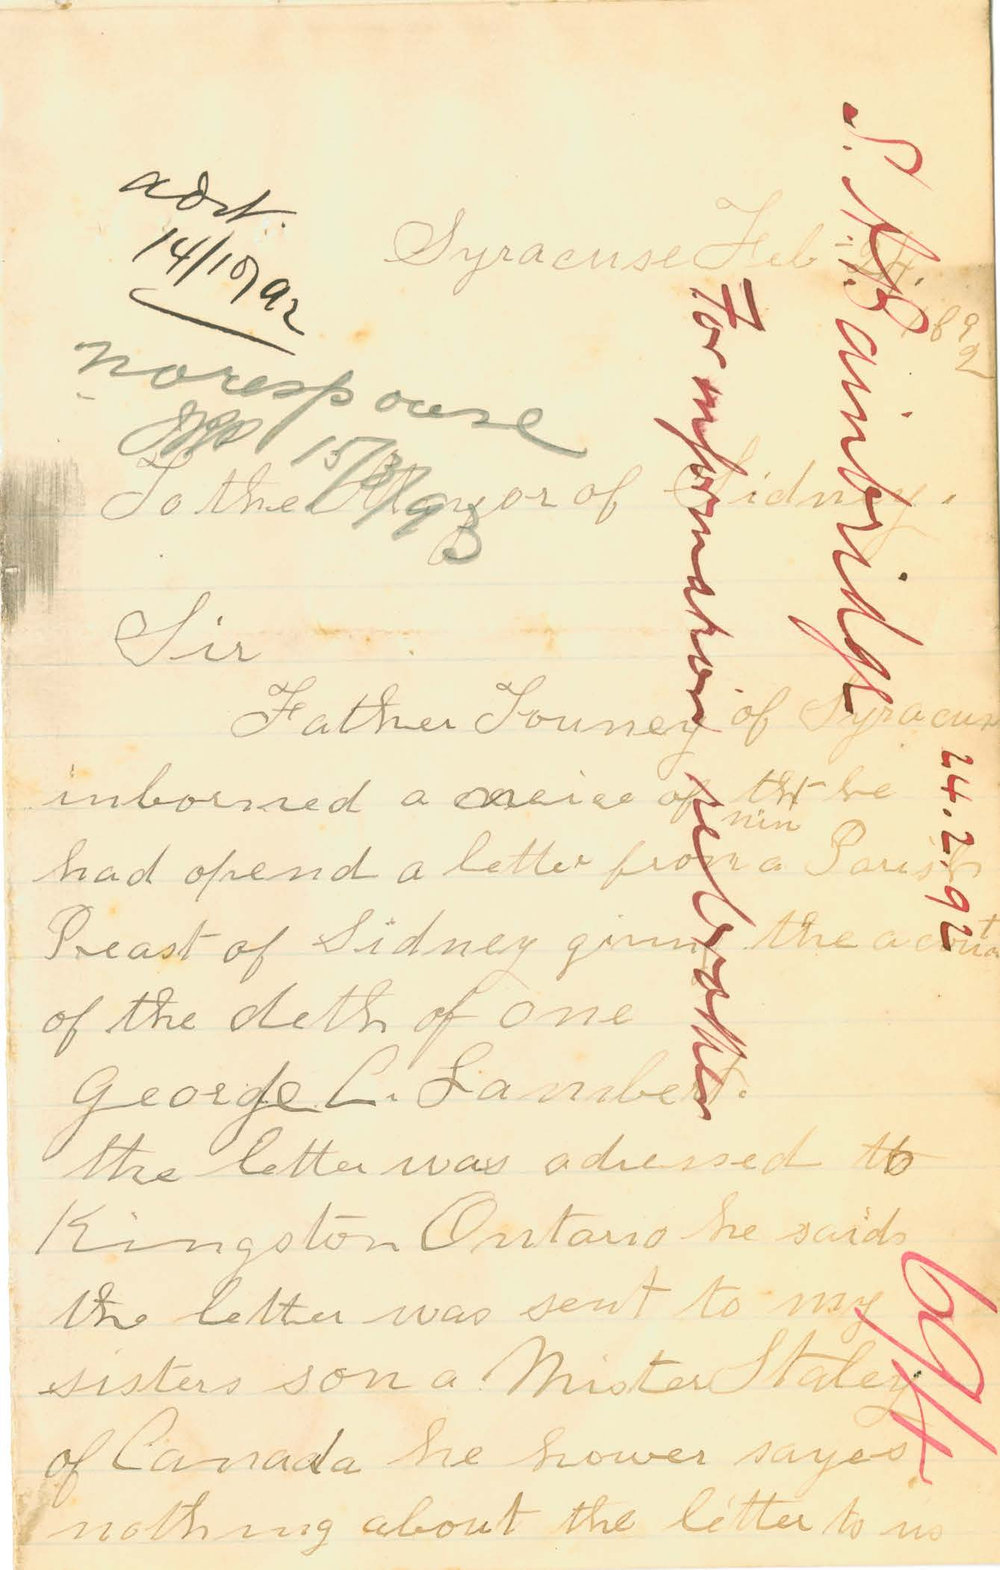 advt.
14/10/92
no response
15/3/93
Syracuse Feb 24.
1892
S. A. Bainbridge
24.2.92
For information re brother
694
To the Mayor of Sidney.
Sir
Father Touney of Syracuse
inborned a neice of min tht he
had opend a letter from a Parish
Preast of Sidney giving the acount
of the deth of one
George L. Lambert.
the letter was adressed to
Kingston Ontario he saids
the letter was sent to my
sisters son a Mister Staley
of Canada he hower sayes
nothing about the letter to us